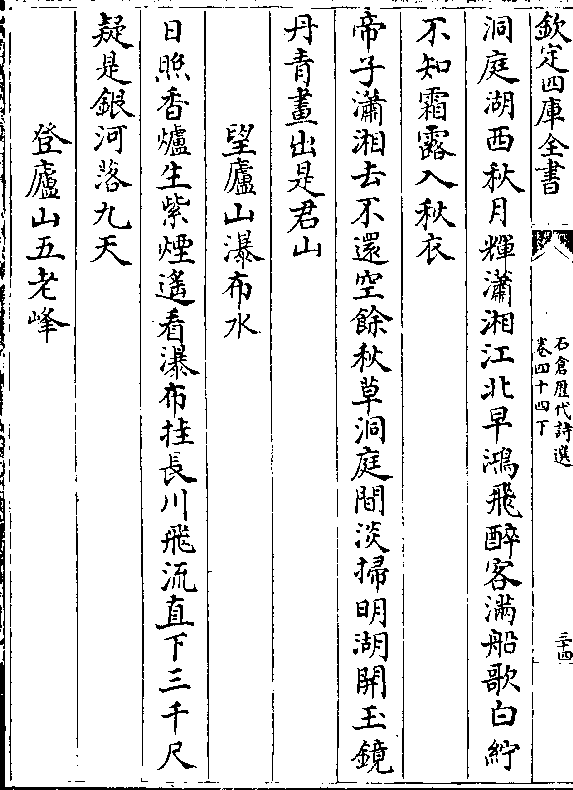 欽定四庫全書
石倉歴代詩選
卷四十四下
三十四
洞庭湖西秋月輝瀟湘江北早鴻飛醉客滿船歌白紵
不知霜露入秋衣
帝子瀟湘去不還空餘秋草洞庭間淡掃明湖開玉鏡
丹青畫出是君山
望廬山瀑布水
日照香爐生紫煙遙看瀑布挂長川飛流直下三千尺
疑是銀河落九天
登廬山五老峰